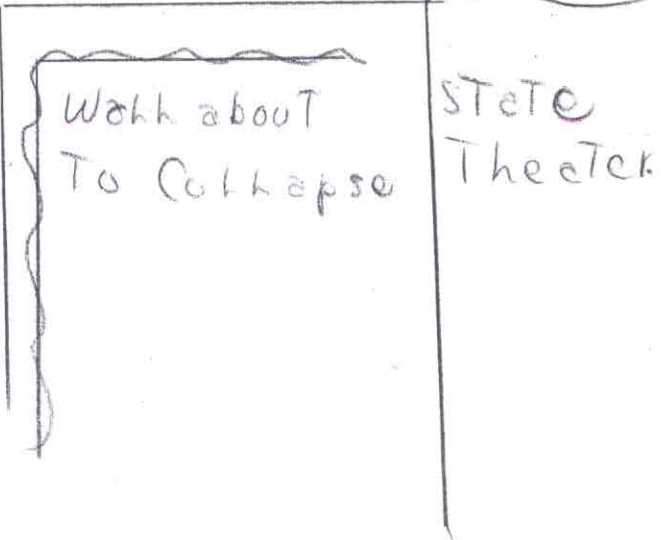 Wall about
To Collapse
STaTe
TheaTer